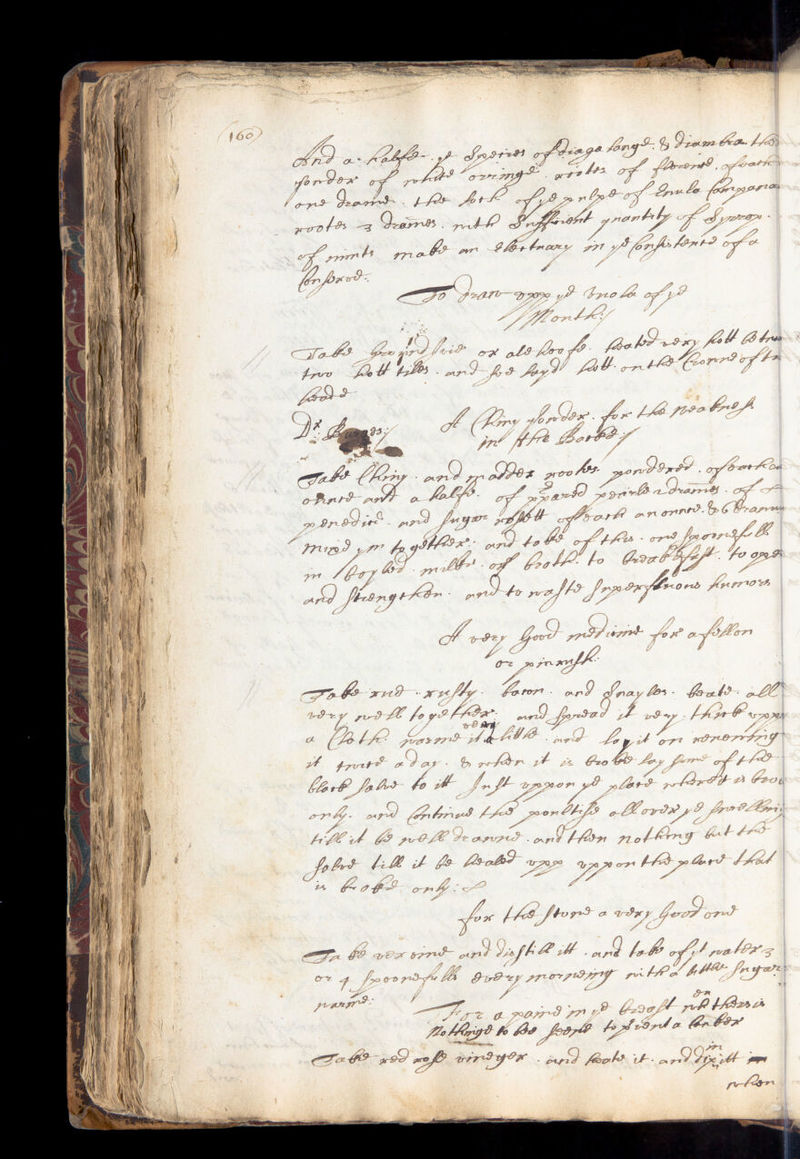 160
And a halfe ye Species of diaga longe & diambra the
powder of white orringe rootes of florence of each
one drame the soft of ye pulpe of Enula Campana
rootes 3 drames with Sufficient quantity of Syrrop
of mints make an Electuary in ye Consistence of a
Conserve:
To draw upp ye Uvola of ye
Mouth:/
Take Ground Ivie or alehoofe heated very hott betwe
two hott tiles and soe layd hott on the Crowne of the
heade
Dr
A Chiny powder for the weaknes
in the Backe:/
Take Chiny and madder rootes powdered of each a
ounce and a halfe of ppared pearle 2 drames of
penedice and sugar rosett of each an ounce & 6 drames
mixe ym together and take of this one spoonefull
in boyled milke or broth to breakefast to open
and strengthen and to waste superfluous humors
A very Good medicine for a fellon
or pinrush
Take rue rusty bacon and Snayles beate all
very well together and spread it very thick uppo
a Cloth warme it a very little and lay it on renewing
it twice a day & when it is broke lay some of the
black salve to itt Just uppon ye place where it is bro
only and Continue the poultise all over ye swelling
till it be well drawne and then nothing but the
salve till it be healed upp uppon the place that
is broke only:
for the stone a very Good one
Take vervine and distill itt and take of yt water 3
or 4 spoonefulls every morneing with a little sugar
warme:
For a paine in ye breast when there is
Nothinge to bee seene to prvent a Canker
Take red rose vineger and heate it and dip itt in
when